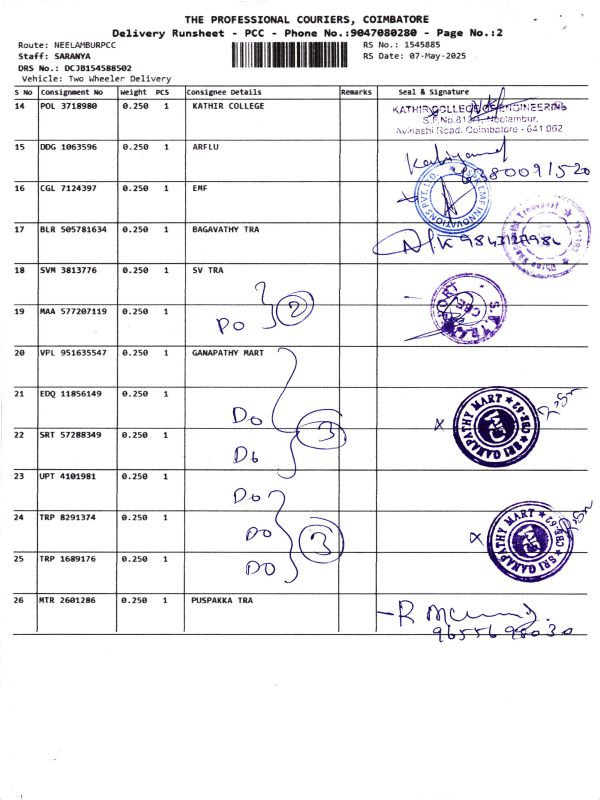 THE PROFESSIONAL COURIERS, COIMBATORE
Delivery Runsheet - PCC - Phone No.:9047080280 - Page No.:2
Route: NEELAMBURPCC RS No.: 1545885
Staff: SARANYA RS Date: 07-May-2025
DRS No.: DCJB154588502
Vehicle: Two Wheeler Delivery
S No Consignment No Weight PCS Consignee Details Remarks Seal & Signature
14 POL 3718980 0.250 1 KATHIR COLLEGE
KATHIR COLLEGE OF ENGINEERING
Neelambur,
Avinashi Road, Coimbatore - 641 062
15 DDG 1063596 0.250 1 ARFLU
16 CGL 7124397 0.250 1 EMF
EMF INNOVATIONS PVT. LTD.
17 BLR 505781634 0.250 1 BAGAVATHY TRA
18 SVM 3813776 0.250 1 SV TRA
2
19 MAA 577207119 0.250 1 Do
20 VPL 951635547 0.250 1 GANAPATHY MART
21 EDQ 11856149 0.250 1 Do
SRI GANAPATHY MART CBE-62
3
22 SRT 57288349 0.250 1 Do
23 UPT 4101981 0.250 1 Do
24 TRP 8291374 0.250 1 Do
3
SRI GANAPATHY MART CBE-62
25 TRP 1689176 0.250 1 DO
26 MTR 2601286 0.250 1 PUSPAKKA TRA
9655698030